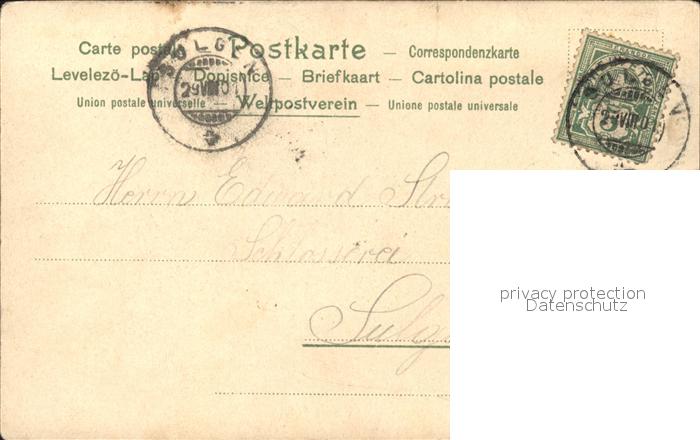 Carte postale Postkarte — Correspondenzkarte
Levelezö-Lap — Dopisnice — Briefkaart — Cartolina postale
Union postale universelle — Weltpostverein — Union postale universale
SULGEN
29 VIII 0
5
29 VIII 0
Herrn Eduard
Schlosserei
privacy protection
Datenschutz